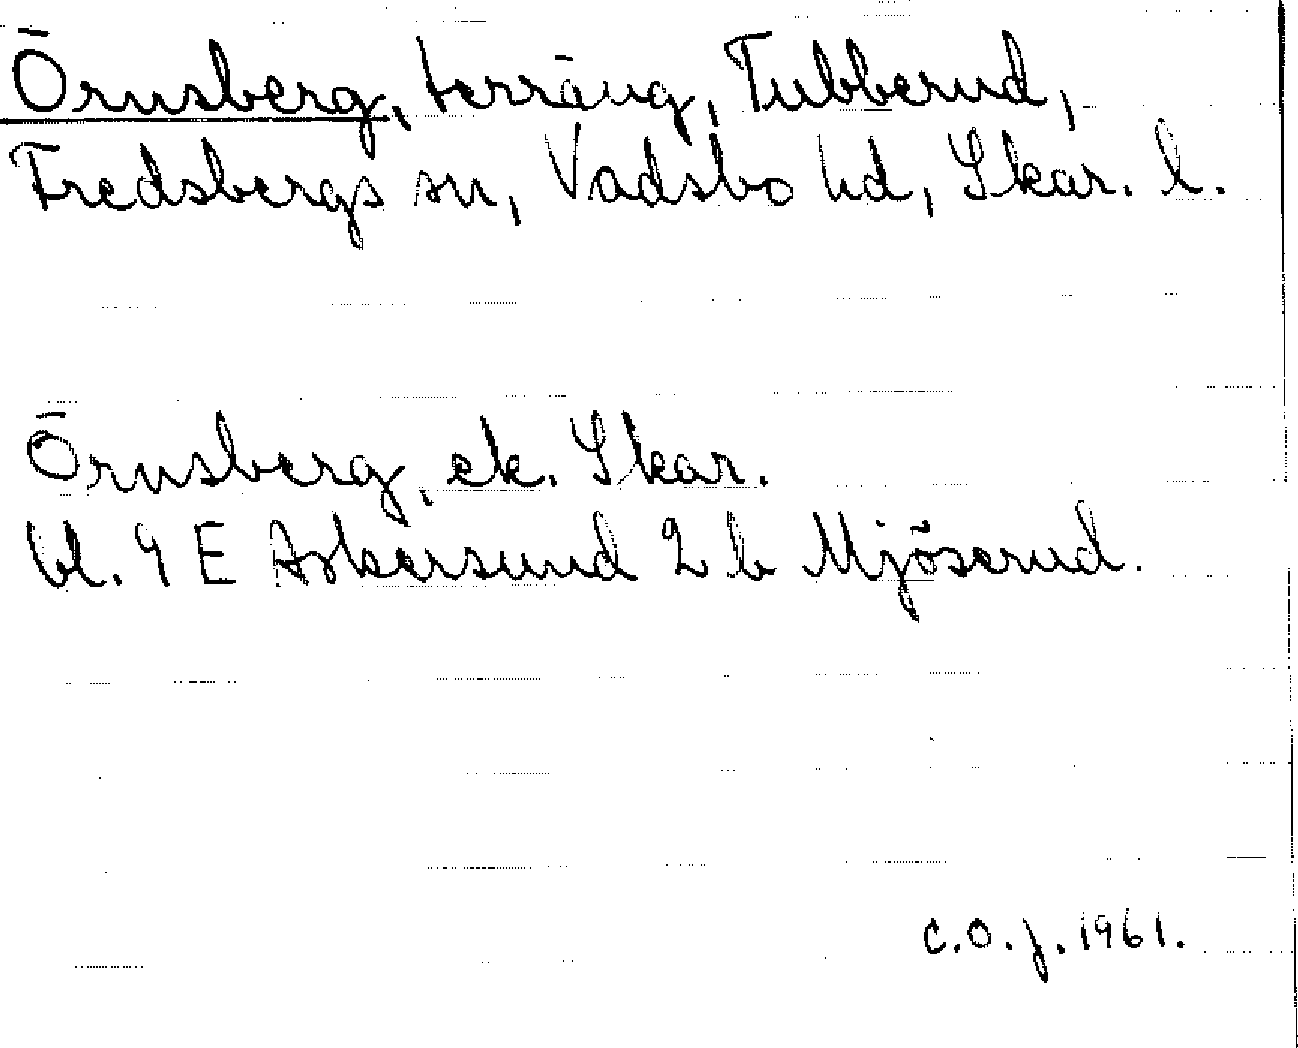 Örnsberg, terräng, Tubberud,
Fredsbergs sn, Vadsbo hd, Skar. l.
Örnsberg, ek. Skar.
bl. 9 E Askersund 2 b Mjöserud.
C.O.J. 1961.